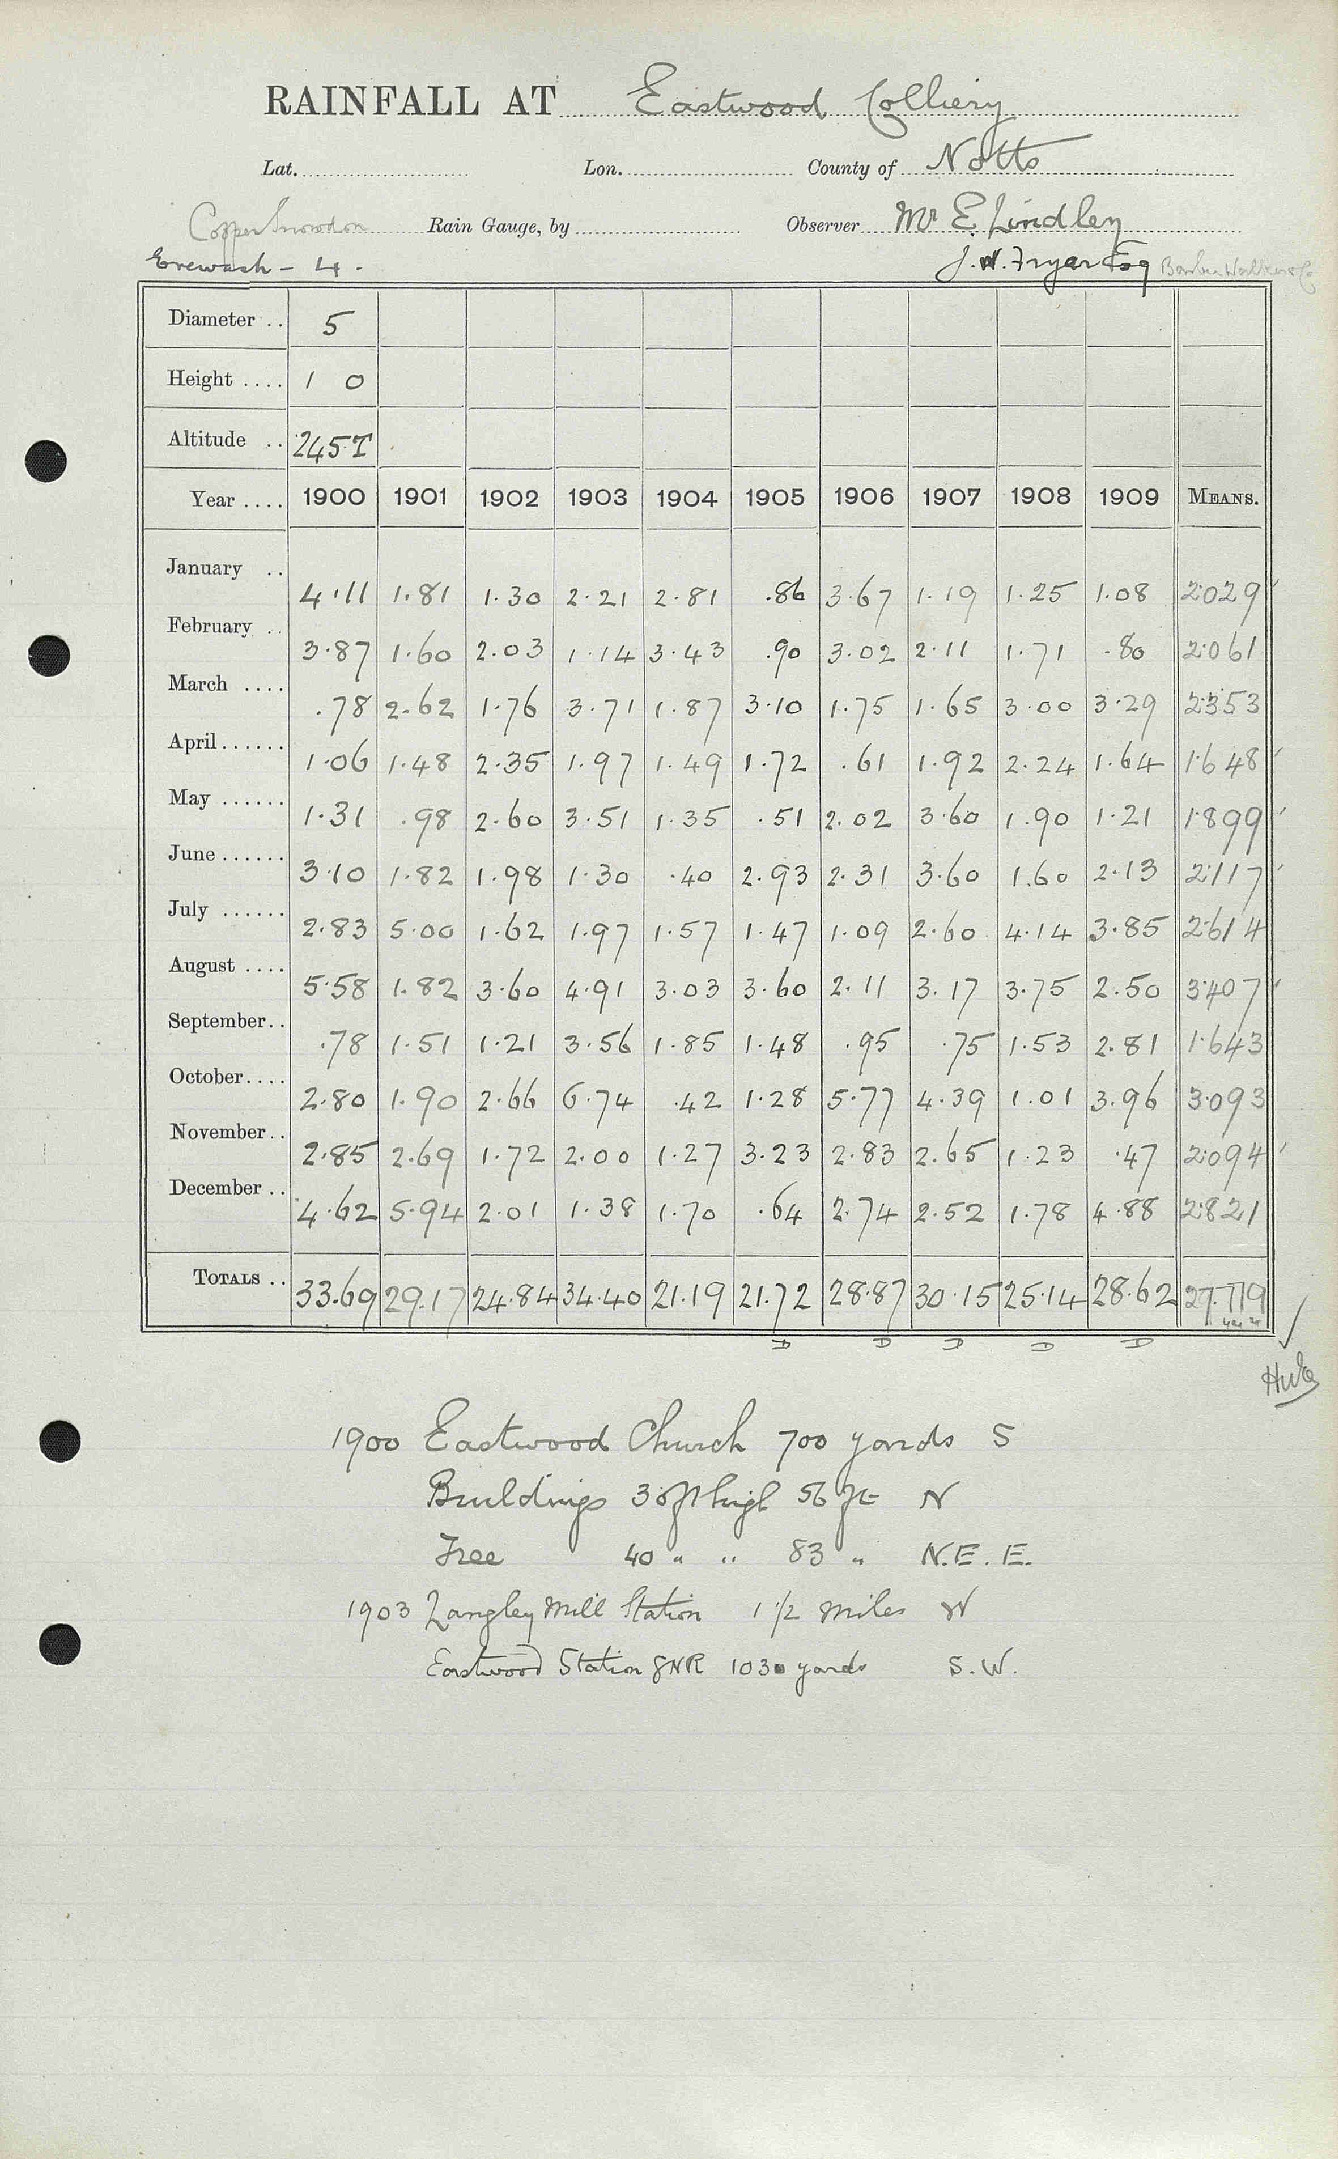 RAINFALL AT Eastwood Colliery
Lat. Lon. County of Notts
Copper Snowdon Rain Gauge, by Observer Mr E. Lindley
Erewash - 4. J. W. Fryar Esq
Diameter .. 5
Height .... 1 0
Altitude .. 245T
Year .... 1900 1901 1902 1903 1904 1905 1906 1907 1908 1909 MEANS.
January .. 4.11 1.81 1.30 2.21 2.81 .86 3.67 1.19 1.25 1.08 2.029
February .. 3.87 1.60 2.03 1.14 3.43 .90 3.02 2.11 1.71 .80 2.061
March .... .78 2.62 1.76 3.71 1.87 3.10 1.75 1.65 3.00 3.29 2.353
April...... 1.06 1.48 2.35 1.97 1.49 1.72 .61 1.92 2.24 1.64 1.648
May ...... 1.31 .98 2.60 3.51 1.35 .51 2.02 3.60 1.90 1.21 1.899
June ...... 3.10 1.82 1.98 1.30 .40 2.93 2.31 3.60 1.60 2.13 2.117
July ...... 2.83 5.00 1.62 1.97 1.57 1.47 1.09 2.60 4.14 3.85 2.614
August .... 5.58 1.82 3.60 4.91 3.03 3.60 2.11 3.17 3.75 2.50 3.407
September.. .78 1.51 1.21 3.56 1.85 1.48 .95 .75 1.53 2.81 1.643
October.... 2.80 1.90 2.66 6.74 .42 1.28 5.77 4.39 1.01 3.96 3.093
November.. 2.85 2.69 1.72 2.00 1.27 3.23 2.83 2.65 1.23 .47 2.094
December .. 4.62 5.94 2.01 1.38 1.70 .64 2.74 2.52 1.78 4.88 2.821
TOTALS .. 33.69 29.17 24.84 34.40 21.19 21.72 28.87 30.15 25.14 28.62 27.779
D D D D D
1900 Eastwood Church 700 yards S
Buildings 30 ft high 56 ft N
Tree 40 " " 83 " N.E. E.
1903 Langley Mill Station 1 1/2 miles W
Eastwood Station GNR 1030 yards S.W.